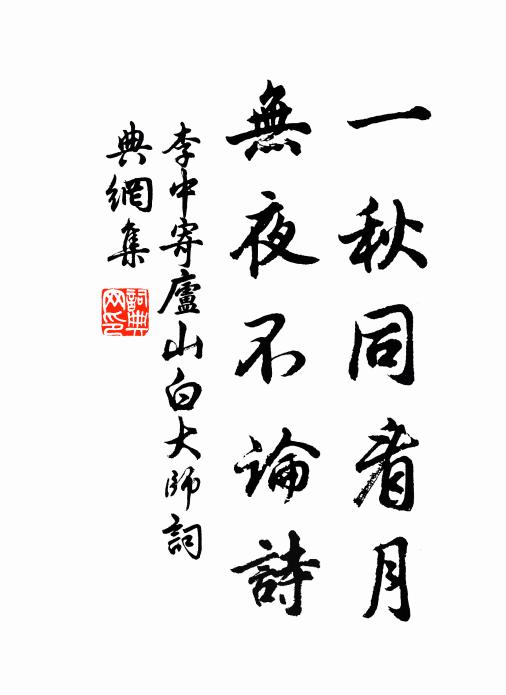 一秋同看月
無夜不論詩
李中寄廬山白大師詞
典網集
詞典
网印